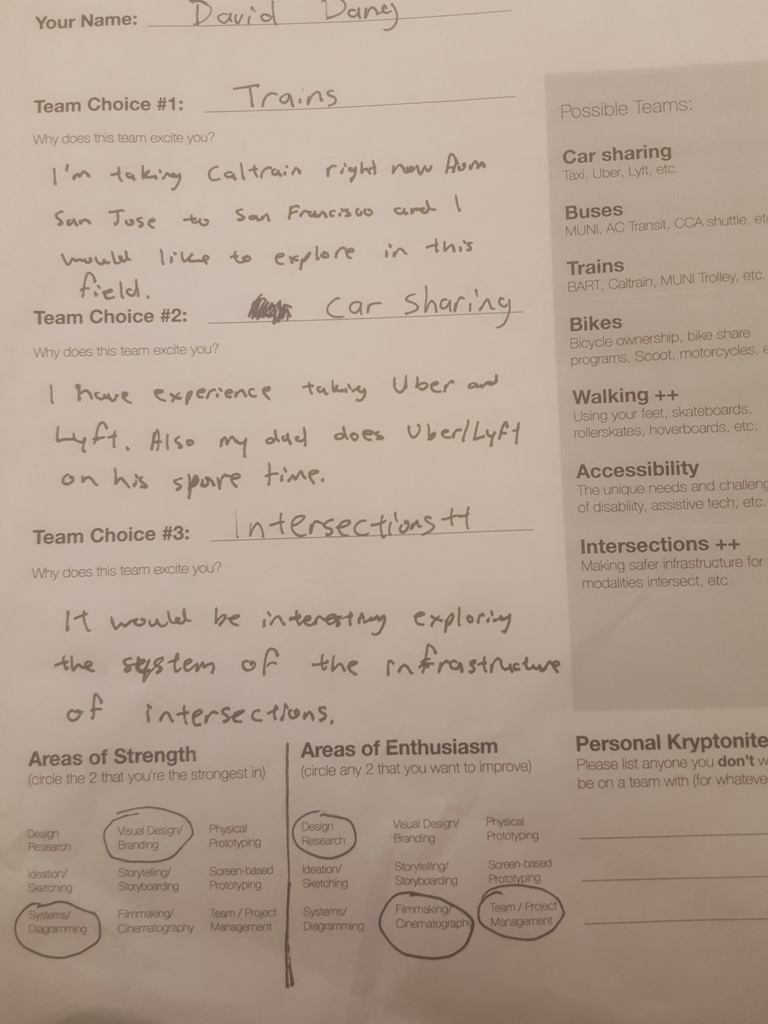 Your Name: David Dang
Team Choice #1: Trains
Why does this team excite you?
I'm taking Caltrain right now from
San Jose to San Francisco and I
would like to explore in this
field.
Team Choice #2: Car Sharing
Why does this team excite you?
I have experience taking Uber and
Lyft. Also my dad does Uber/Lyft
on his spare time.
Team Choice #3: Intersections++
Why does this team excite you?
It would be interesting exploring
the system of the infrastructure
of intersections.
Possible Teams:
Car sharing
Taxi, Uber, Lyft, etc.
Buses
MUNI, AC Transit, CCA shuttle, etc
Trains
BART, Caltrain, MUNI Trolley, etc.
Bikes
Bicycle ownership, bike share
programs, Scoot, motorcycles, e
Walking ++
Using your feet, skateboards,
rollerskates, hoverboards, etc.
Accessibility
The unique needs and challeng
of disability, assistive tech, etc.
Intersections ++
Making safer infrastructure for
modalities intersect, etc.
Areas of Strength
(circle the 2 that you're the strongest in)
Design Research
Visual Design/ Branding
Physical Prototyping
Ideation/ Sketching
Storytelling/ Storyboarding
Screen-based Prototyping
Systems/ Diagramming
Filmmaking/ Cinematography
Team / Project Management
Areas of Enthusiasm
(circle any 2 that you want to improve)
Design Research
Visual Design/ Branding
Physical Prototyping
Ideation/ Sketching
Storytelling/ Storyboarding
Screen-based Prototyping
Systems/ Diagramming
Filmmaking/ Cinematography
Team / Project Management
Personal Kryptonite
Please list anyone you don't w
be on a team with (for whateve